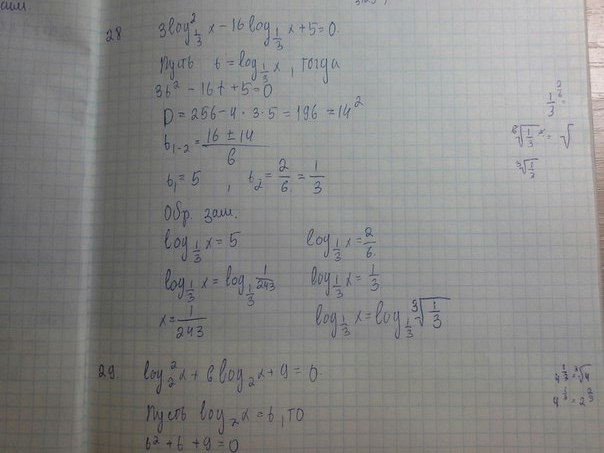 28 3log²_{1/3} x - 16log_{1/3} x + 5 = 0.
Пусть t = log_{1/3} x, тогда
3t² - 16t + 5 = 0
D = 256 - 4 · 3 · 5 = 196 = 14²
t_{1-2} = (16 ± 14)/6
t₁ = 5 , t₂ = 2/6 = 1/3
Обр. зам.
log_{1/3} x = 5 log_{1/3} x = 2/6
log_{1/3} x = log_{1/3} 1/243 log_{1/3} x = 1/3
x = 1/243 log_{1/3} x = log_{1/3} ∛(1/3)
29. log²₂ x + 6log₂ x + 9 = 0.
Пусть log₂ x = t, то
t² + t + 9 = 0
1/3^{2/6} =
∛(1/3)
4^{1/3} = ∛4